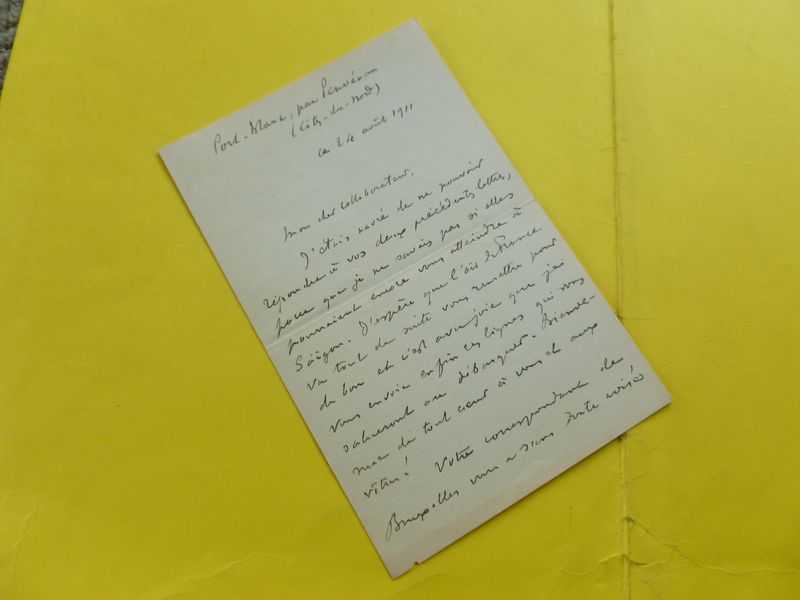 Port-Blanc, par Penvénan
(Côtes-du-Nord)
le 24 août 1911
Mon cher collaborateur,
J'étais navré de ne pouvoir
répondre à vos deux précédentes lettres,
parce que je ne savais pas si elles
pourraient encore vous atteindre à
Saïgon. J'espère que l'air de France
va tout de suite vous remettre pour
de bon et c'est avec joie que je
vous envoie enfin ces lignes qui vous
salueront au débarquer. Bienve-
nue de tout cœur à vous et aux
vôtres!
Votre correspondant de
Bruxelles vous a sans doute avisé